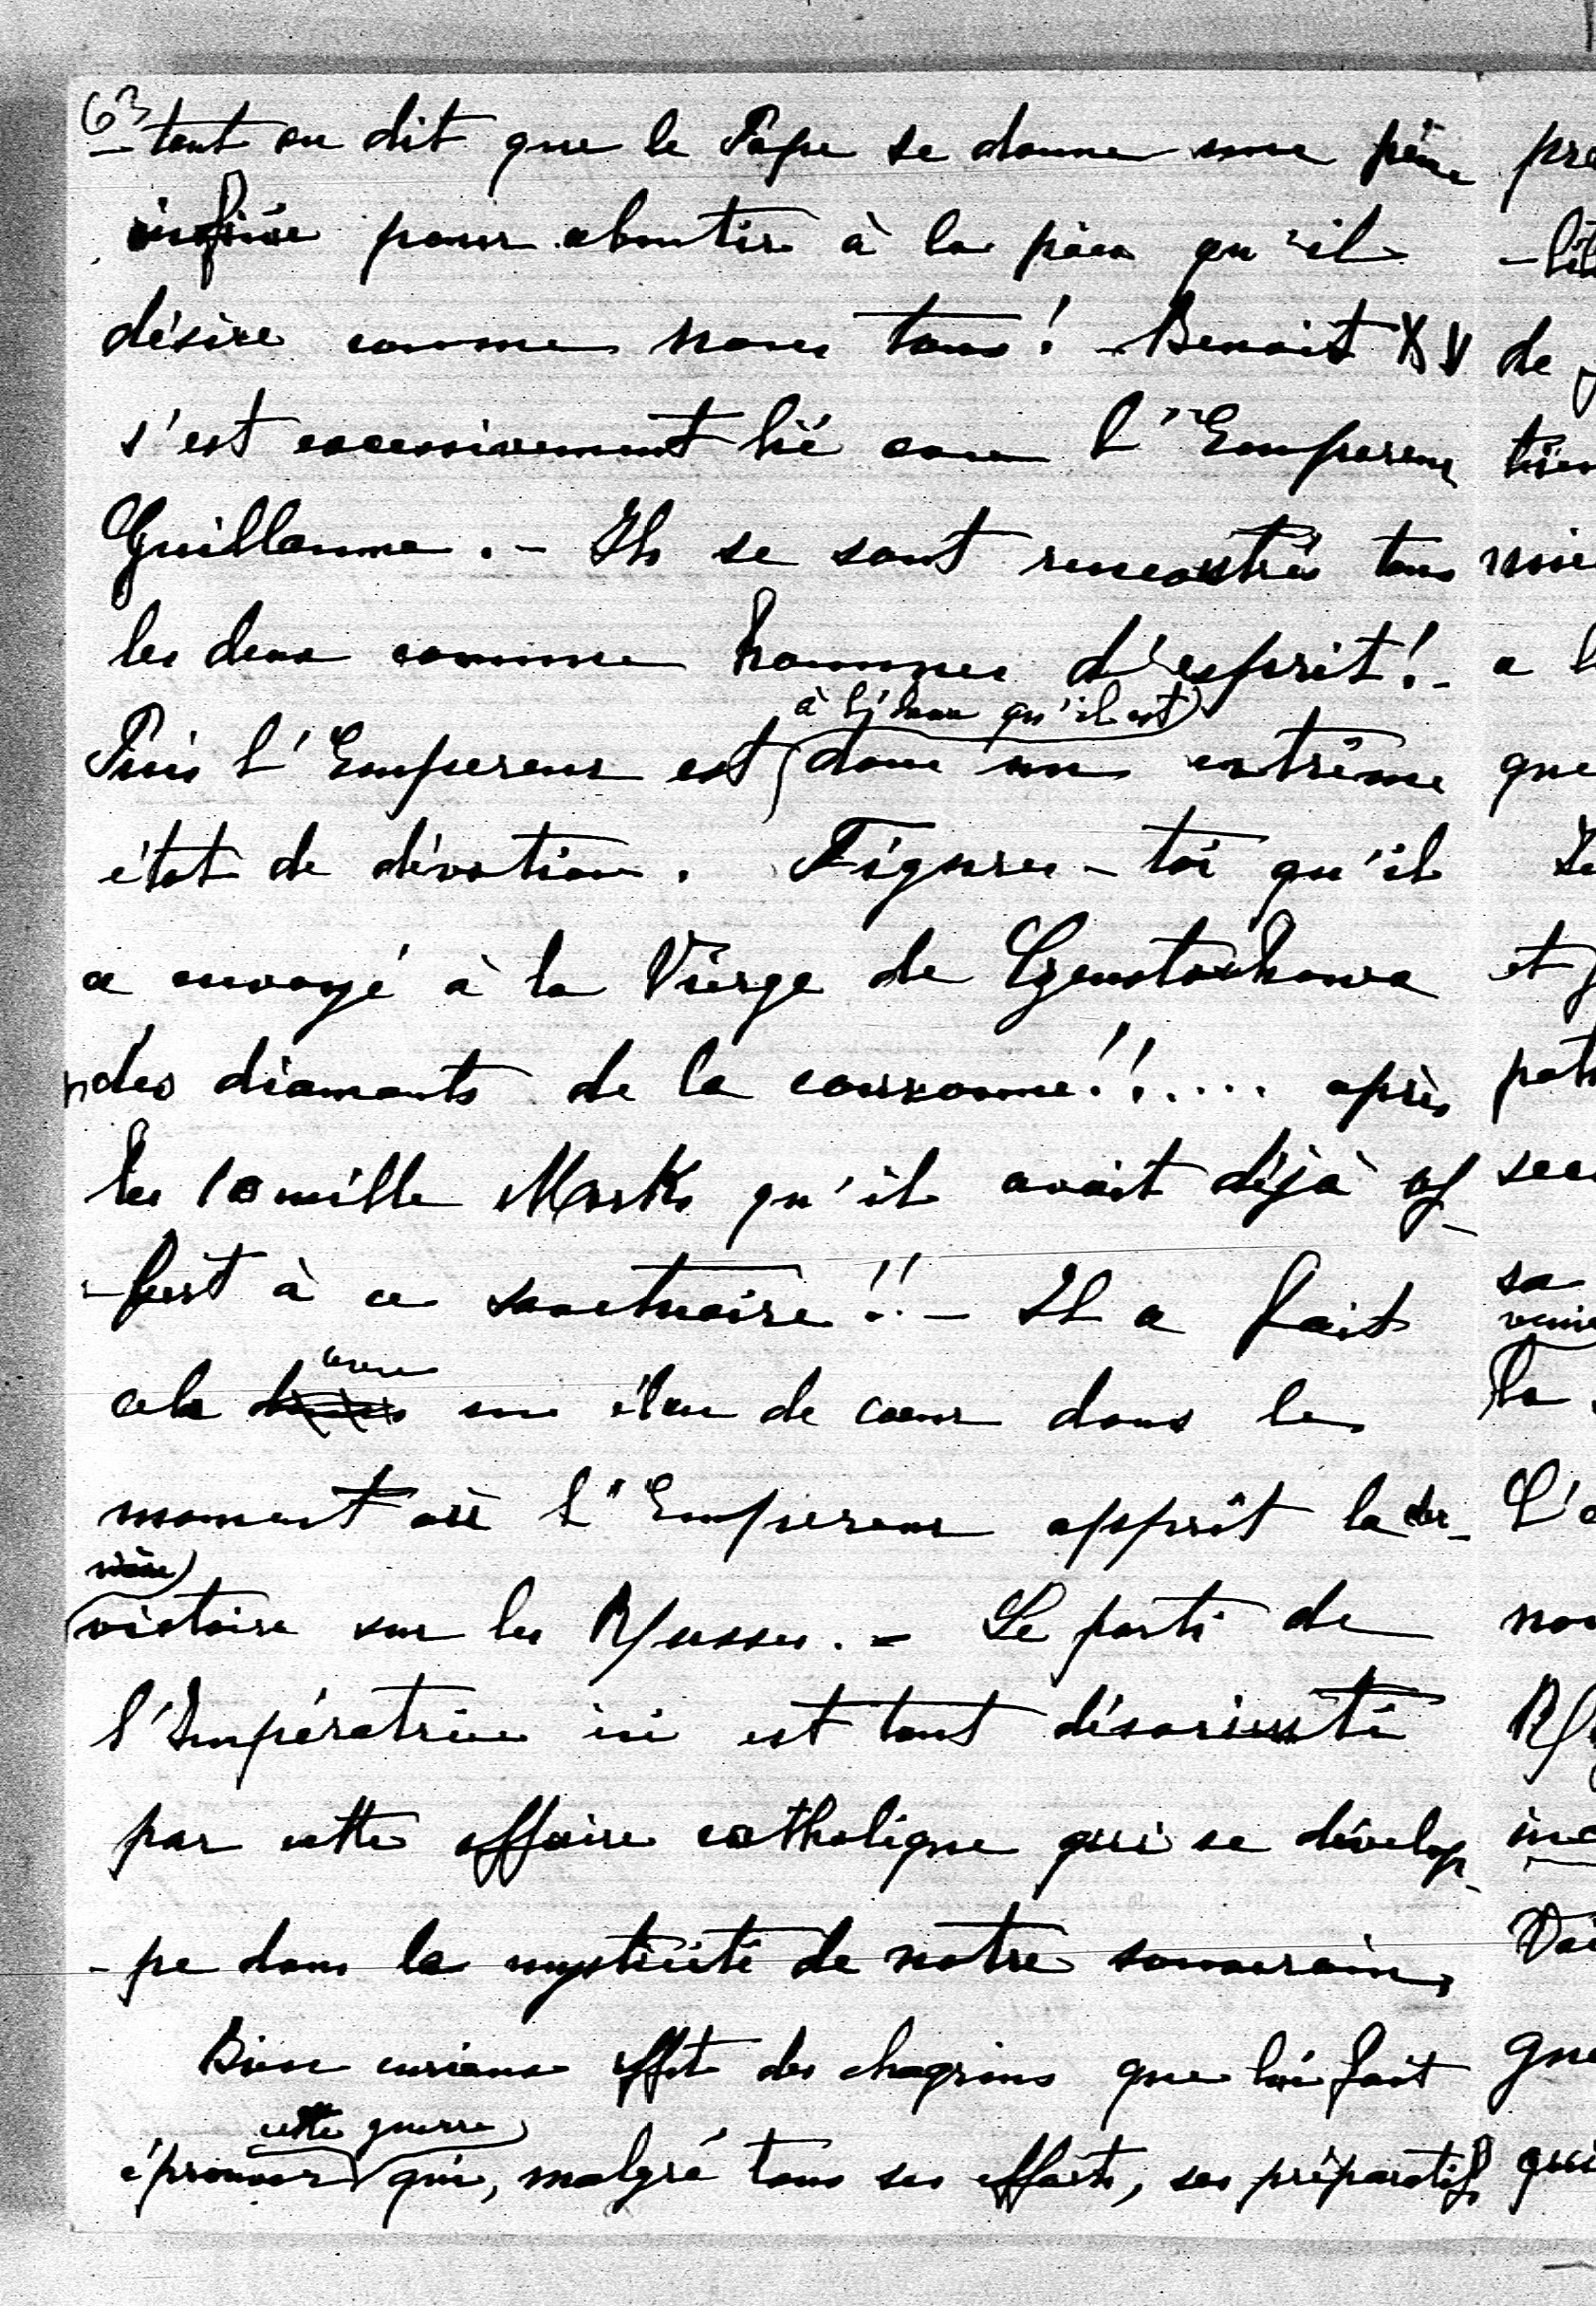 63
-tant on dit que le Pape se donne une peine
infinie pour aboutir à la paix qu'il
désire comme nous tous! Benoit XV
s'est excessivement lié avec l'Empereur
Guillaume. - Ils se sont rencontrés tous
les deux comme hommes d'esprit! -
à l'heure qu'il est
Puis l'Empereur est dans un extrême
état de dévotion. Figures-toi qu'il
a envoyé à la Vierge de Czenstochowa
des diamants de la couronne!!.... après
les 10 mille Marks qu'il avait déjà of-
-fert à ce sanctuaire!! - Il a fait
avec
cela dans un élan de cœur dans le
moment où l'Empereur apprit la der-
nière
victoire sur les Russes. - Le parti de
l'Impératrice ici est tout désorienté
par cette affaire catholique qui se dévelop-
-pe dans la mysticité de notre souverain,
Bien curieux effet des chagrins que lui fait
cette guerre
éprouver qui, malgré tous ses efforts, ses préparatifs
pré
-lit
de
tien
a l
que
et
sa
la
L'a
nou
que
qui